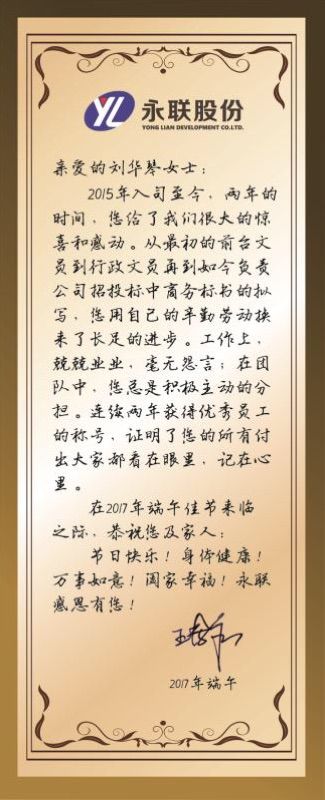 YL
永联股份
YONG LIAN DEVELOPMENT CO.LTD.
亲爱的刘华琴女士：
2015年入司至今，两年的
时间，您给了我们很大的惊
喜和感动。从最初的前台文
员到行政文员再到如今负责
公司招投标中商务标书的拟
写，您用自己的辛勤劳动换
来了长足的进步。工作上，
兢兢业业，毫无怨言；在团
队中，您总是积极主动的分
担。连续两年获得优秀员工
的称号，证明了您的所有付
出大家都看在眼里，记在心
里。
在2017年端午佳节来临
之际，恭祝您及家人：
节日快乐！身体健康！
万事如意！阖家幸福！永联
感恩有您！
2017年端午